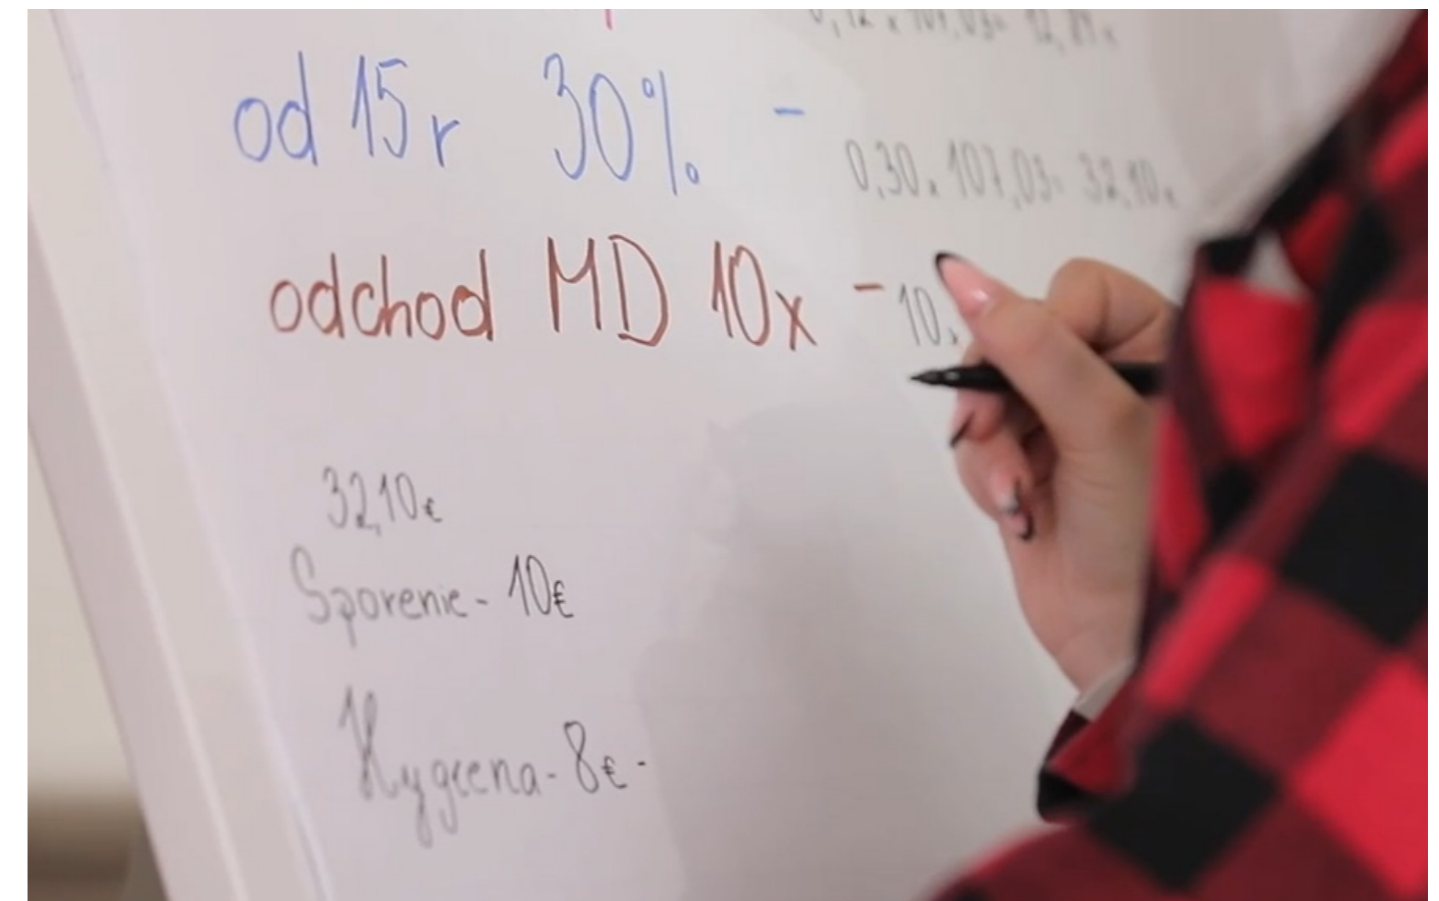 0,12 x 107,03= 12,84€
od 15r 30% - 0,30x 107,03= 32,10€
odchod MD 10x - 10x
32,10€
Sporenie - 10€
Hygiena - 8€ -